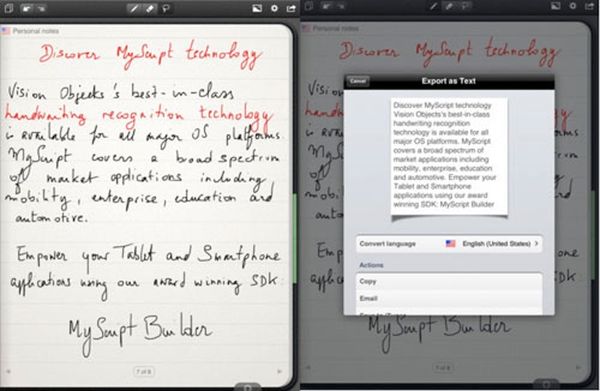 Personal notes
Discover MyScript technology
Vision Objects's best-in-class
handwriting recognition technology
is available for all major OS platforms
MyScript covers a broad spectrum
of market applications including
mobility, enterprise, education and
automotive.
Empower your Tablet and Smartphone
applications using our award winning SDK:
MyScript Builder
7 of 8
Personal notes
Discover MyScript technology
Cancel
Export as Text
Discover MyScript technology
Vision Objects's best-in-class
handwriting recognition
technology is available for all
major OS platforms. MyScript
covers a broad spectrum of
market applications including
mobility, enterprise, education
and automotive. Empower your
Tablet and Smartphone
applications using our award
winning SDK: MyScript Builder
Convert language
English (United States)
Actions
Copy
Email
MyScript Builder
7 of 8